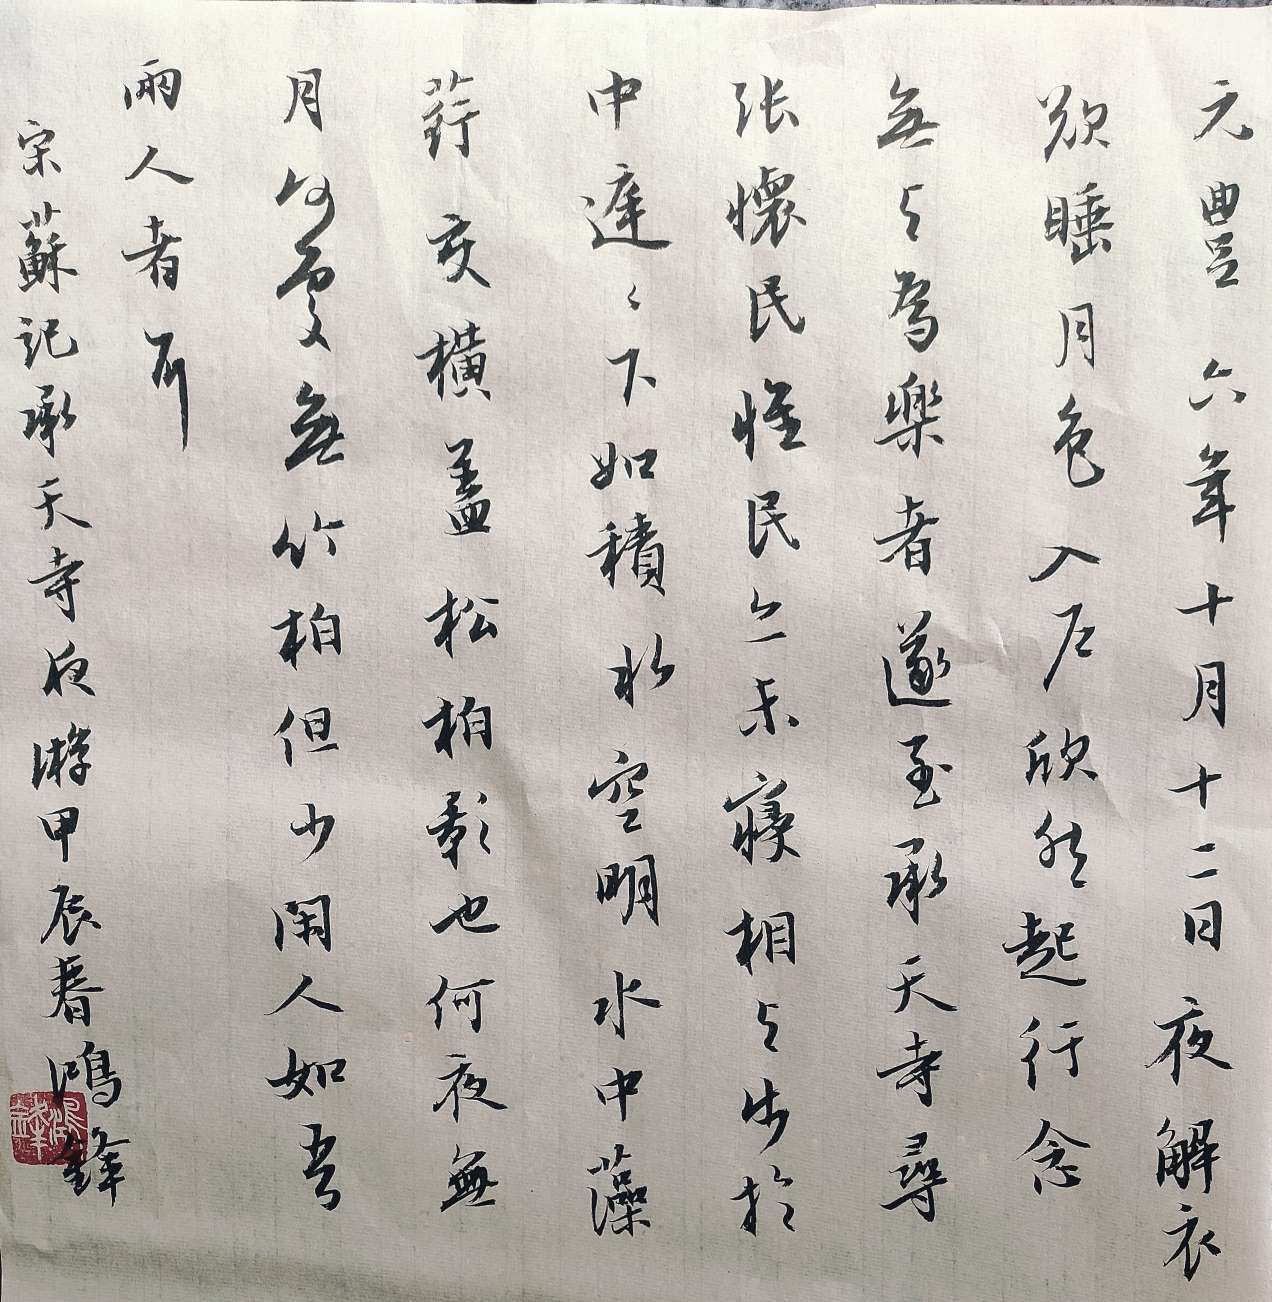 元豐六年十月十二日夜解衣
欲睡月色入戶欣然起行念
無与為樂者遂至承天寺尋
張懷民惟民亦未寢相与步於
中庭々下如積水空明水中藻
荇交橫蓋松柏影也何夜無
月何處無竹柏但少閑人如吾
兩人者耳
宋蘇記承天寺夜游甲辰春鴻鋒